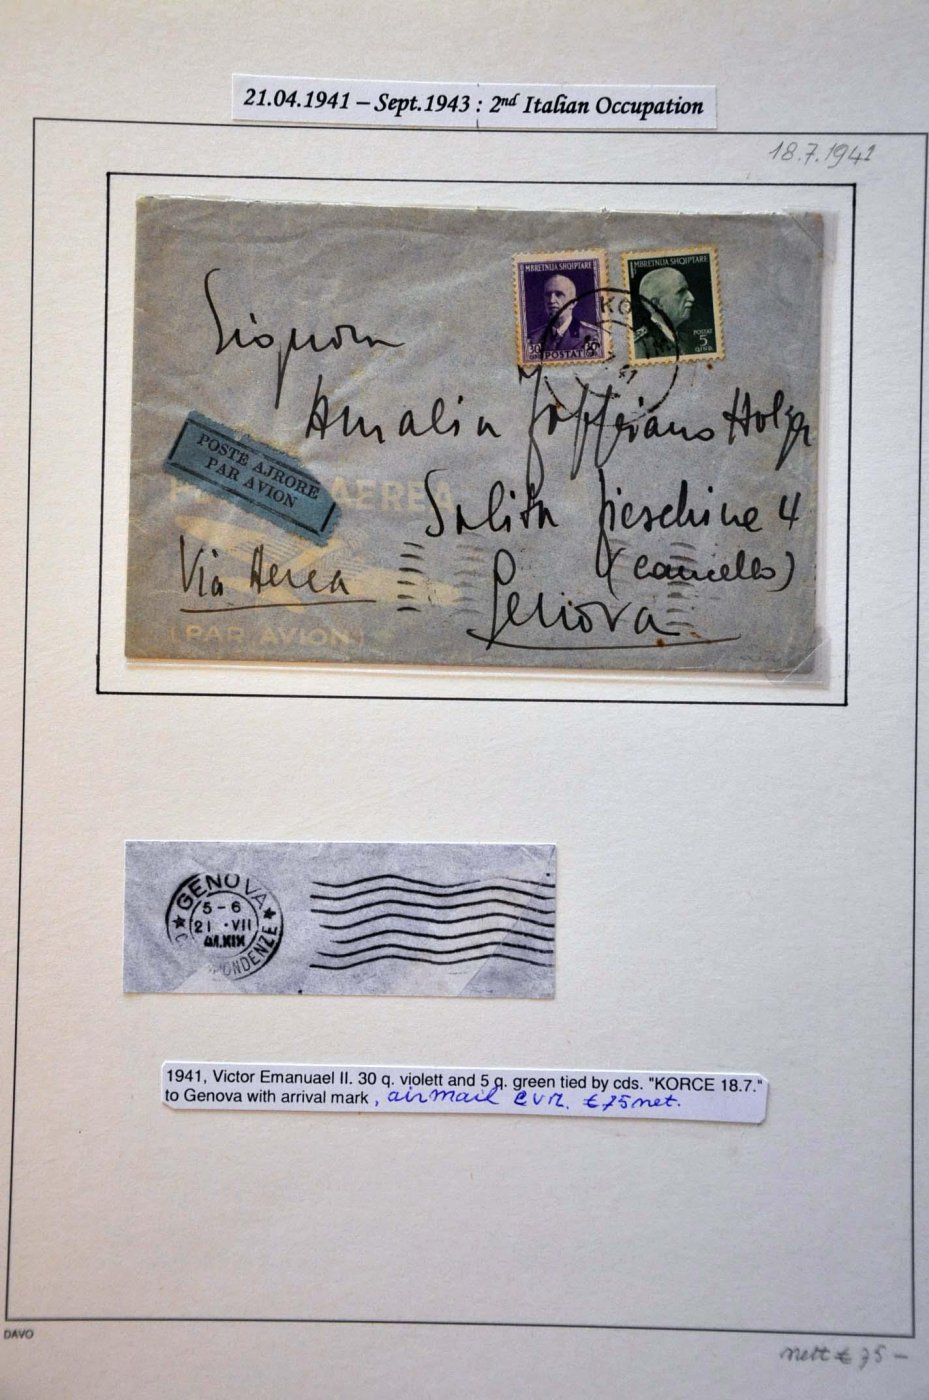 21.04.1941 – Sept.1943 : 2nd Italian Occupation
18.7.1941
MBRETNIJA SHQIPTARE
30
POSTAT
MBRETNIJA SHQIPTARE
POSTAT
5
QIND.
KO
41
Signora
Amalia
Salita Fieschine 4
(cancello)
Genova
POSTE AJRORE
PAR AVION
AEREA
Via Aerea
(PAR AVION)
GENOVA
5-6
21 ·VII
41.XIX
ONDENZE
1941, Victor Emanuael II. 30 q. violett and 5 q. green tied by cds. "KORCE 18.7."
to Genova with arrival mark, airmail cvr. €75 net.
DAVO
nett € 75 –